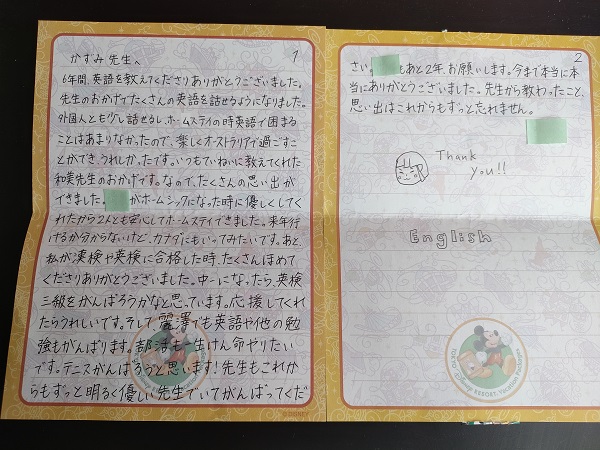 1
かずみ先生へ
6年間、英語を教えてくださりありがとうございました。
先生のおかげでたくさんの英語を話せるようになりました。
外国人とも少し話せるし、ホームステイの時英語で困まる
ことはあまりなかったので、楽しくオーストラリアで過ごすこ
とができ、うれしかったです。いつもていねいに教えてくれた
和美先生のおかげです。なので、たくさんの思い出が
できました。
がホームシックになった時に優しくしてく
れたから2人とも安心してホームステイできました。来年行
けるか分からないけど、カナダにもいってみたいです。あと、
私が漢検や英検に合格した時、たくさんほめて
くださりありがとうございました。中一になったら、英検
三級をがんばろうかなと思っています。応援してくれ
たらうれしいです。そして麗澤でも英語や他の勉
強もがんばります。部活も一生けん命やりたい
です。テニスがんばろうと思います!先生もこれか
らもずっと明るく優しい先生でいてがんばってくだ
© DISNEY
2
さい。
もあと2年、お願いします。今まで本当に本
当にありがとうございました。先生から教わったこと、
思い出はこれからもずっと忘れません。
Thank
you!!
English
TOKYO Disney RESORT